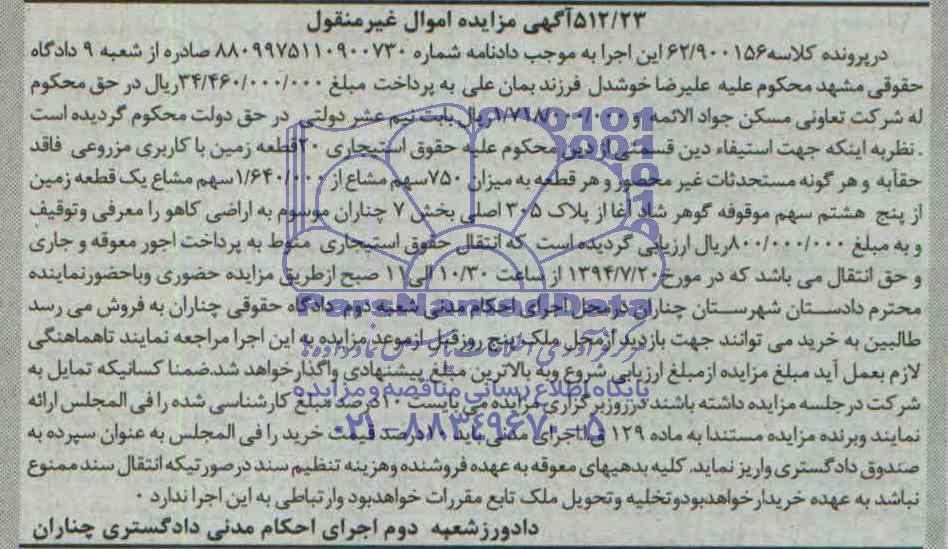 ۵۱۲/۲۳آگهی مزایده اموال غیرمنقول
درپرونده کلاسه۶۲/۹۰۰۱۵۶ این اجرا به موجب دادنامه شماره ۸۸۰۹۹۷۵۱۱۰۹۰۰۷۳۰ صادره از شعبه ۹ دادگاه
حقوقی مشهد محکوم علیه علیرضا خوشدل فرزند بمان علی به پرداخت مبلغ ۳۴/۴۶۰/۰۰۰/۰۰۰ریال در حق محکوم
له شرکت تعاونی مسکن جواد الائمه و ۱/۷۱۸/۰۰۰/۰۰۰ریال بابت نیم عشر دولتی در حق دولت محکوم گردیده است
. نظربه اینکه جهت استیفاء دین قسمتی از دین محکوم علیه حقوق استیجاری ۲۰قطعه زمین با کاربری مزروعی فاقد
حقآبه و هر گونه مستحدثات غیر محصور و هر قطعه به میزان ۷۵۰سهم مشاع از ۱/۶۴۰/۰۰۰سهم مشاع یک قطعه زمین
از پنج هشتم سهم موقوفه گوهر شاد آغا از پلاک ۳۰۵ اصلی بخش ۷ چناران موسوم به اراضی کاهو را معرفی وتوقیف
و به مبلغ ۸۰۰/۰۰۰/۰۰۰ریال ارزیابی گردیده است که انتقال حقوق استیجاری منوط به پرداخت اجور معوقه و جاری
و حق انتقال می باشد که در مورخ۱۳۹۴/۷/۲۰ از ساعت ۱۰/۳۰ الی ۱۱ صبح ازطریق مزایده حضوری وباحضورنماینده
محترم دادستان شهرستان چناران درمحل اجرای احکام مدنی شعبه دوم دادگاه حقوقی چناران به فروش می رسد
طالبین به خرید می توانند جهت بازدید ازمحل ملک پنج روزقبل ازموعد مزایده به این اجرا مراجعه نمایند تاهماهنگی
لازم بعمل آید مبلغ مزایده ازمبلغ ارزیابی شروع وبه بالاترین مبلغ پیشنهادی واگذارخواهد شد.ضمنا کسانیکه تمایل به
شرکت درجلسه مزایده داشته باشند درروزبرگزاری مزایده می بایست ۱۰درصد مبلغ کارشناسی شده را فی المجلس ارائه
نمایند وبرنده مزایده مستندا به ماده ۱۲۹ ق ااجرای مدنی باید ۱۰درصد قیمت خرید را فی المجلس به عنوان سپرده به
صندوق دادگستری واریز نماید. کلیه بدهیهای معوقه به عهده فروشنده وهزینه تنظیم سند درصورتیکه انتقال سند ممنوع
نباشد به عهده خریدارخواهدبودوتخلیه وتحویل ملک تابع مقررات خواهدبود وارتباطی به این اجرا ندارد ۰
دادورزشعبه دوم اجرای احکام مدنی دادگستری چناران
ParsNamadData
پایگاه اطلاع رسانی مناقصه و مزایده
۰۲۱-۸۸۳۴۹۶۷۰-۵